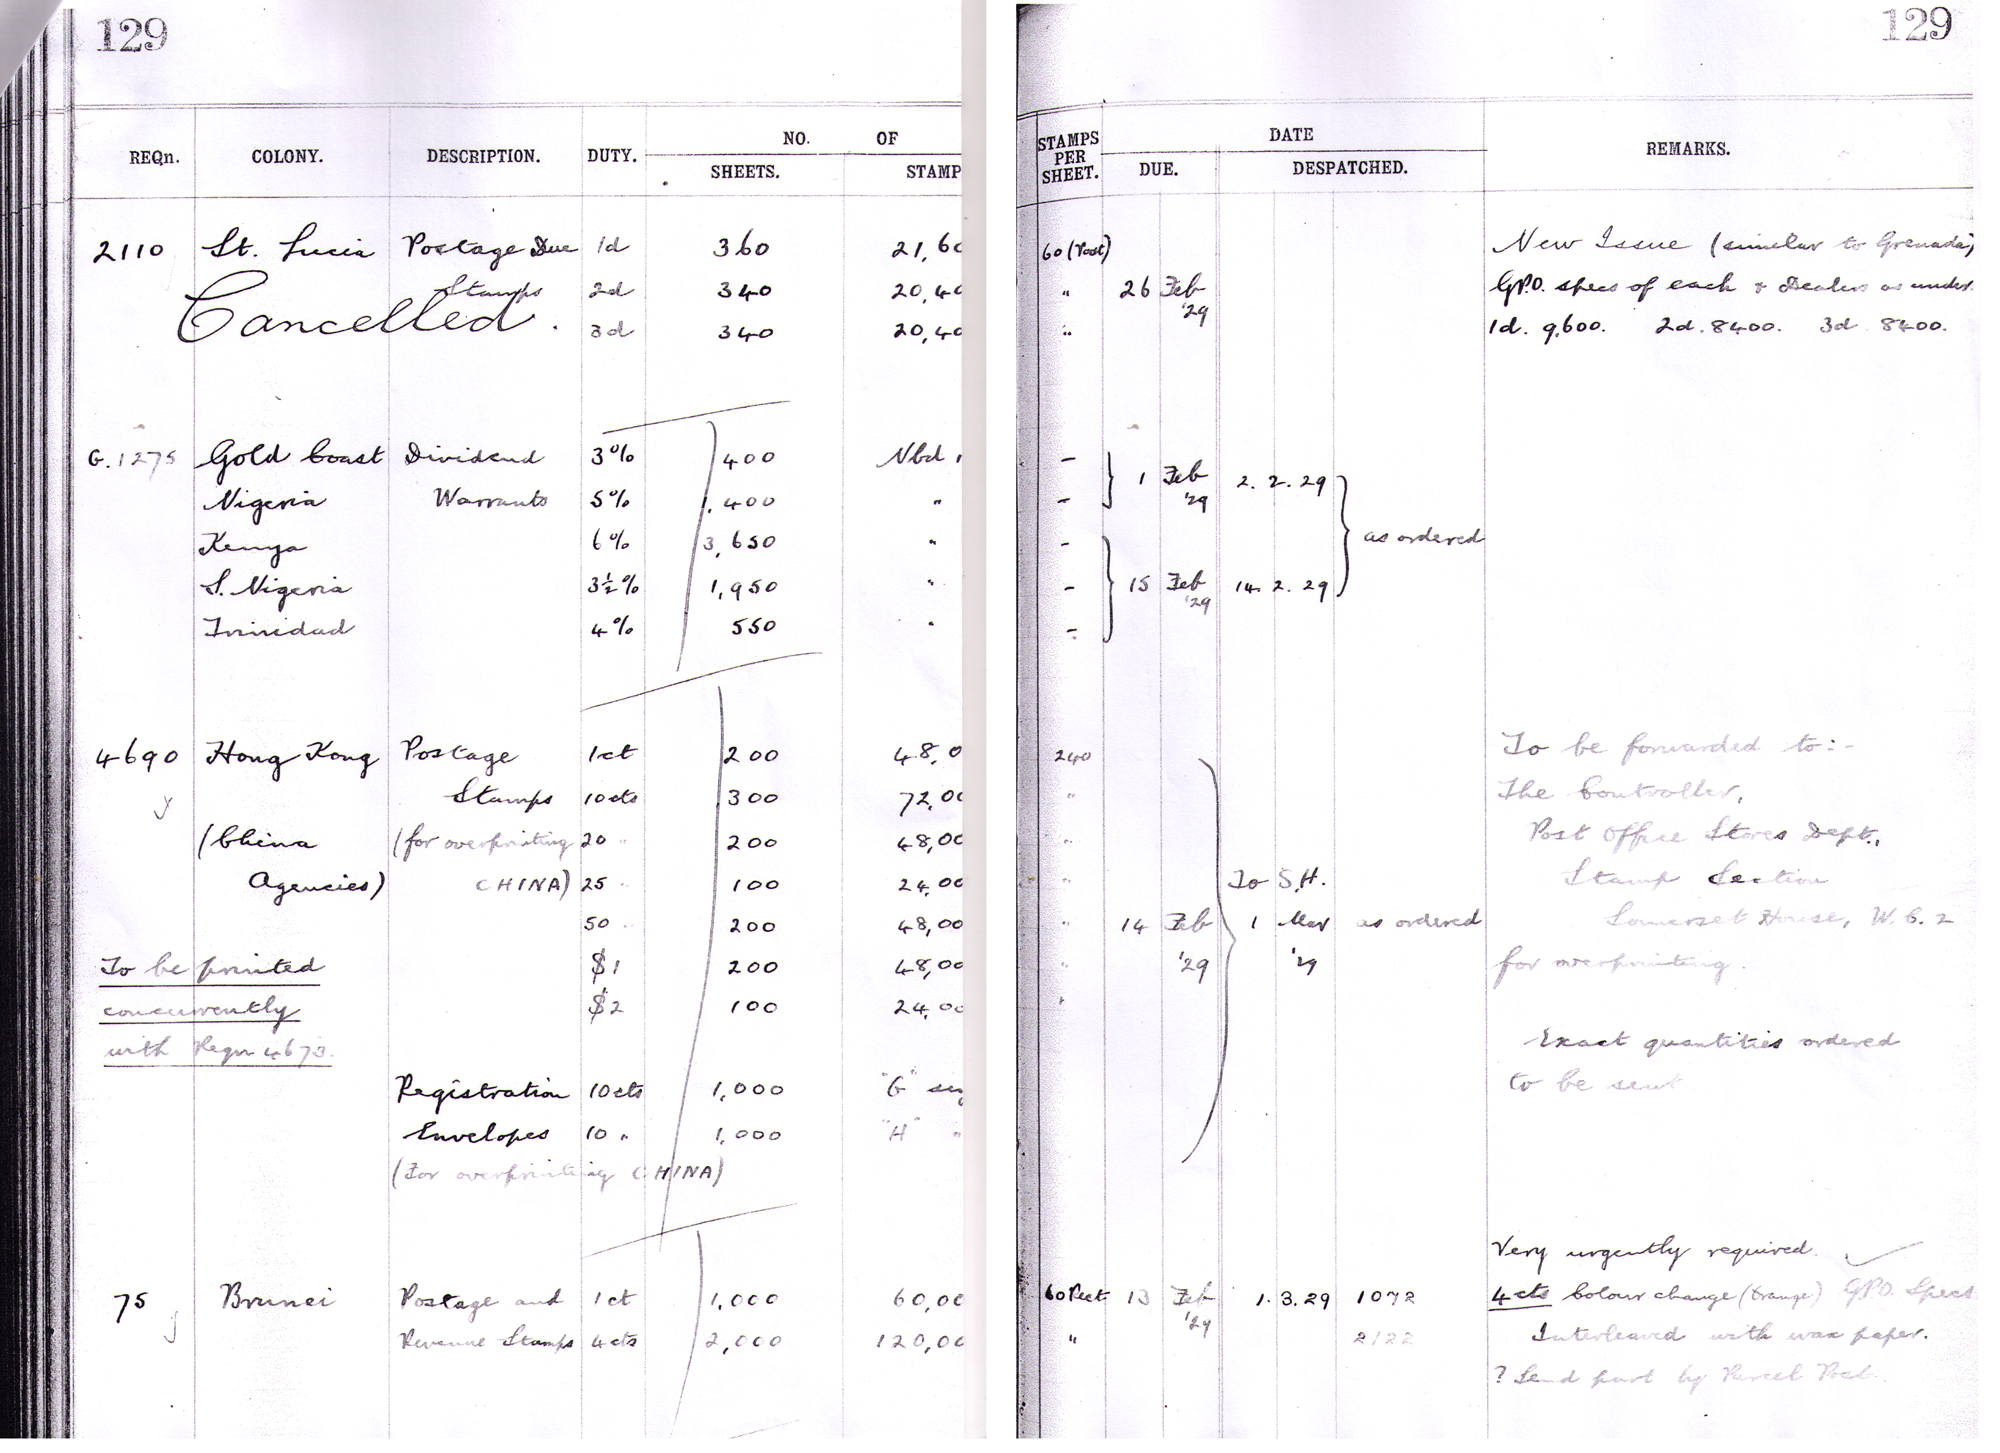 129
REQn. COLONY. DESCRIPTION. DUTY. NO. OF
SHEETS. STAMP
2110 St. Lucia Postage Due 1d 360 21,60
Stamps 2d 340 20,40
Cancelled. 3d 340 20,40
G.1275 Gold Coast Dividend 3% 400 Nbd
Nigeria Warrants 5% 1,400 "
Kenya 6% 3,650 "
S. Nigeria 3½% 1,950 "
Trinidad 4% 550 "
4690 Hong Kong Postage 1ct 200 48,0
Stamps 10cts 300 72,00
(China (for overprinting 20 " 200 48,00
Agencies) CHINA) 25 " 100 24,00
50 " 200 48,00
To be printed $1 200 48,00
concurrently $2 100 24,00
with Reqn 4673.
Registration 10cts 1,000 "G"
Envelopes 10 " 1,000 "H" "
(For overprinting CHINA)
75 Brunei Postage and 1ct 1,000 60,00
Revenue Stamps 4cts 2,000 120,00
129
STAMPS PER SHEET. DATE REMARKS.
DUE. DESPATCHED.
60 (Post) New Issue (similar to Grenada)
" 26 Feb '29 G.P.O. specs of each & Dealers as under
" 1d. 9,600. 2d. 8400. 3d 8400.
-
- 1 Feb '29 2. 2. 29
- as ordered
- 15 Feb '29 14. 2. 29
-
240 To be forwarded to:-
" The Controller,
" Post Office Stores Dept.,
" To S.H. Stamp Section
" 14 Feb 1 Mar as ordered Somerset House, W.C.2
" '29 '29 for overprinting.
"
Exact quantities ordered
to be sent
Very urgently required.
60 Pect 13 Feb '29 1. 3. 29 1072 4cts Colour change (Orange) GPO. Specs
" 2122 Interleaved with wax paper.
? Send part by Parcel Post.